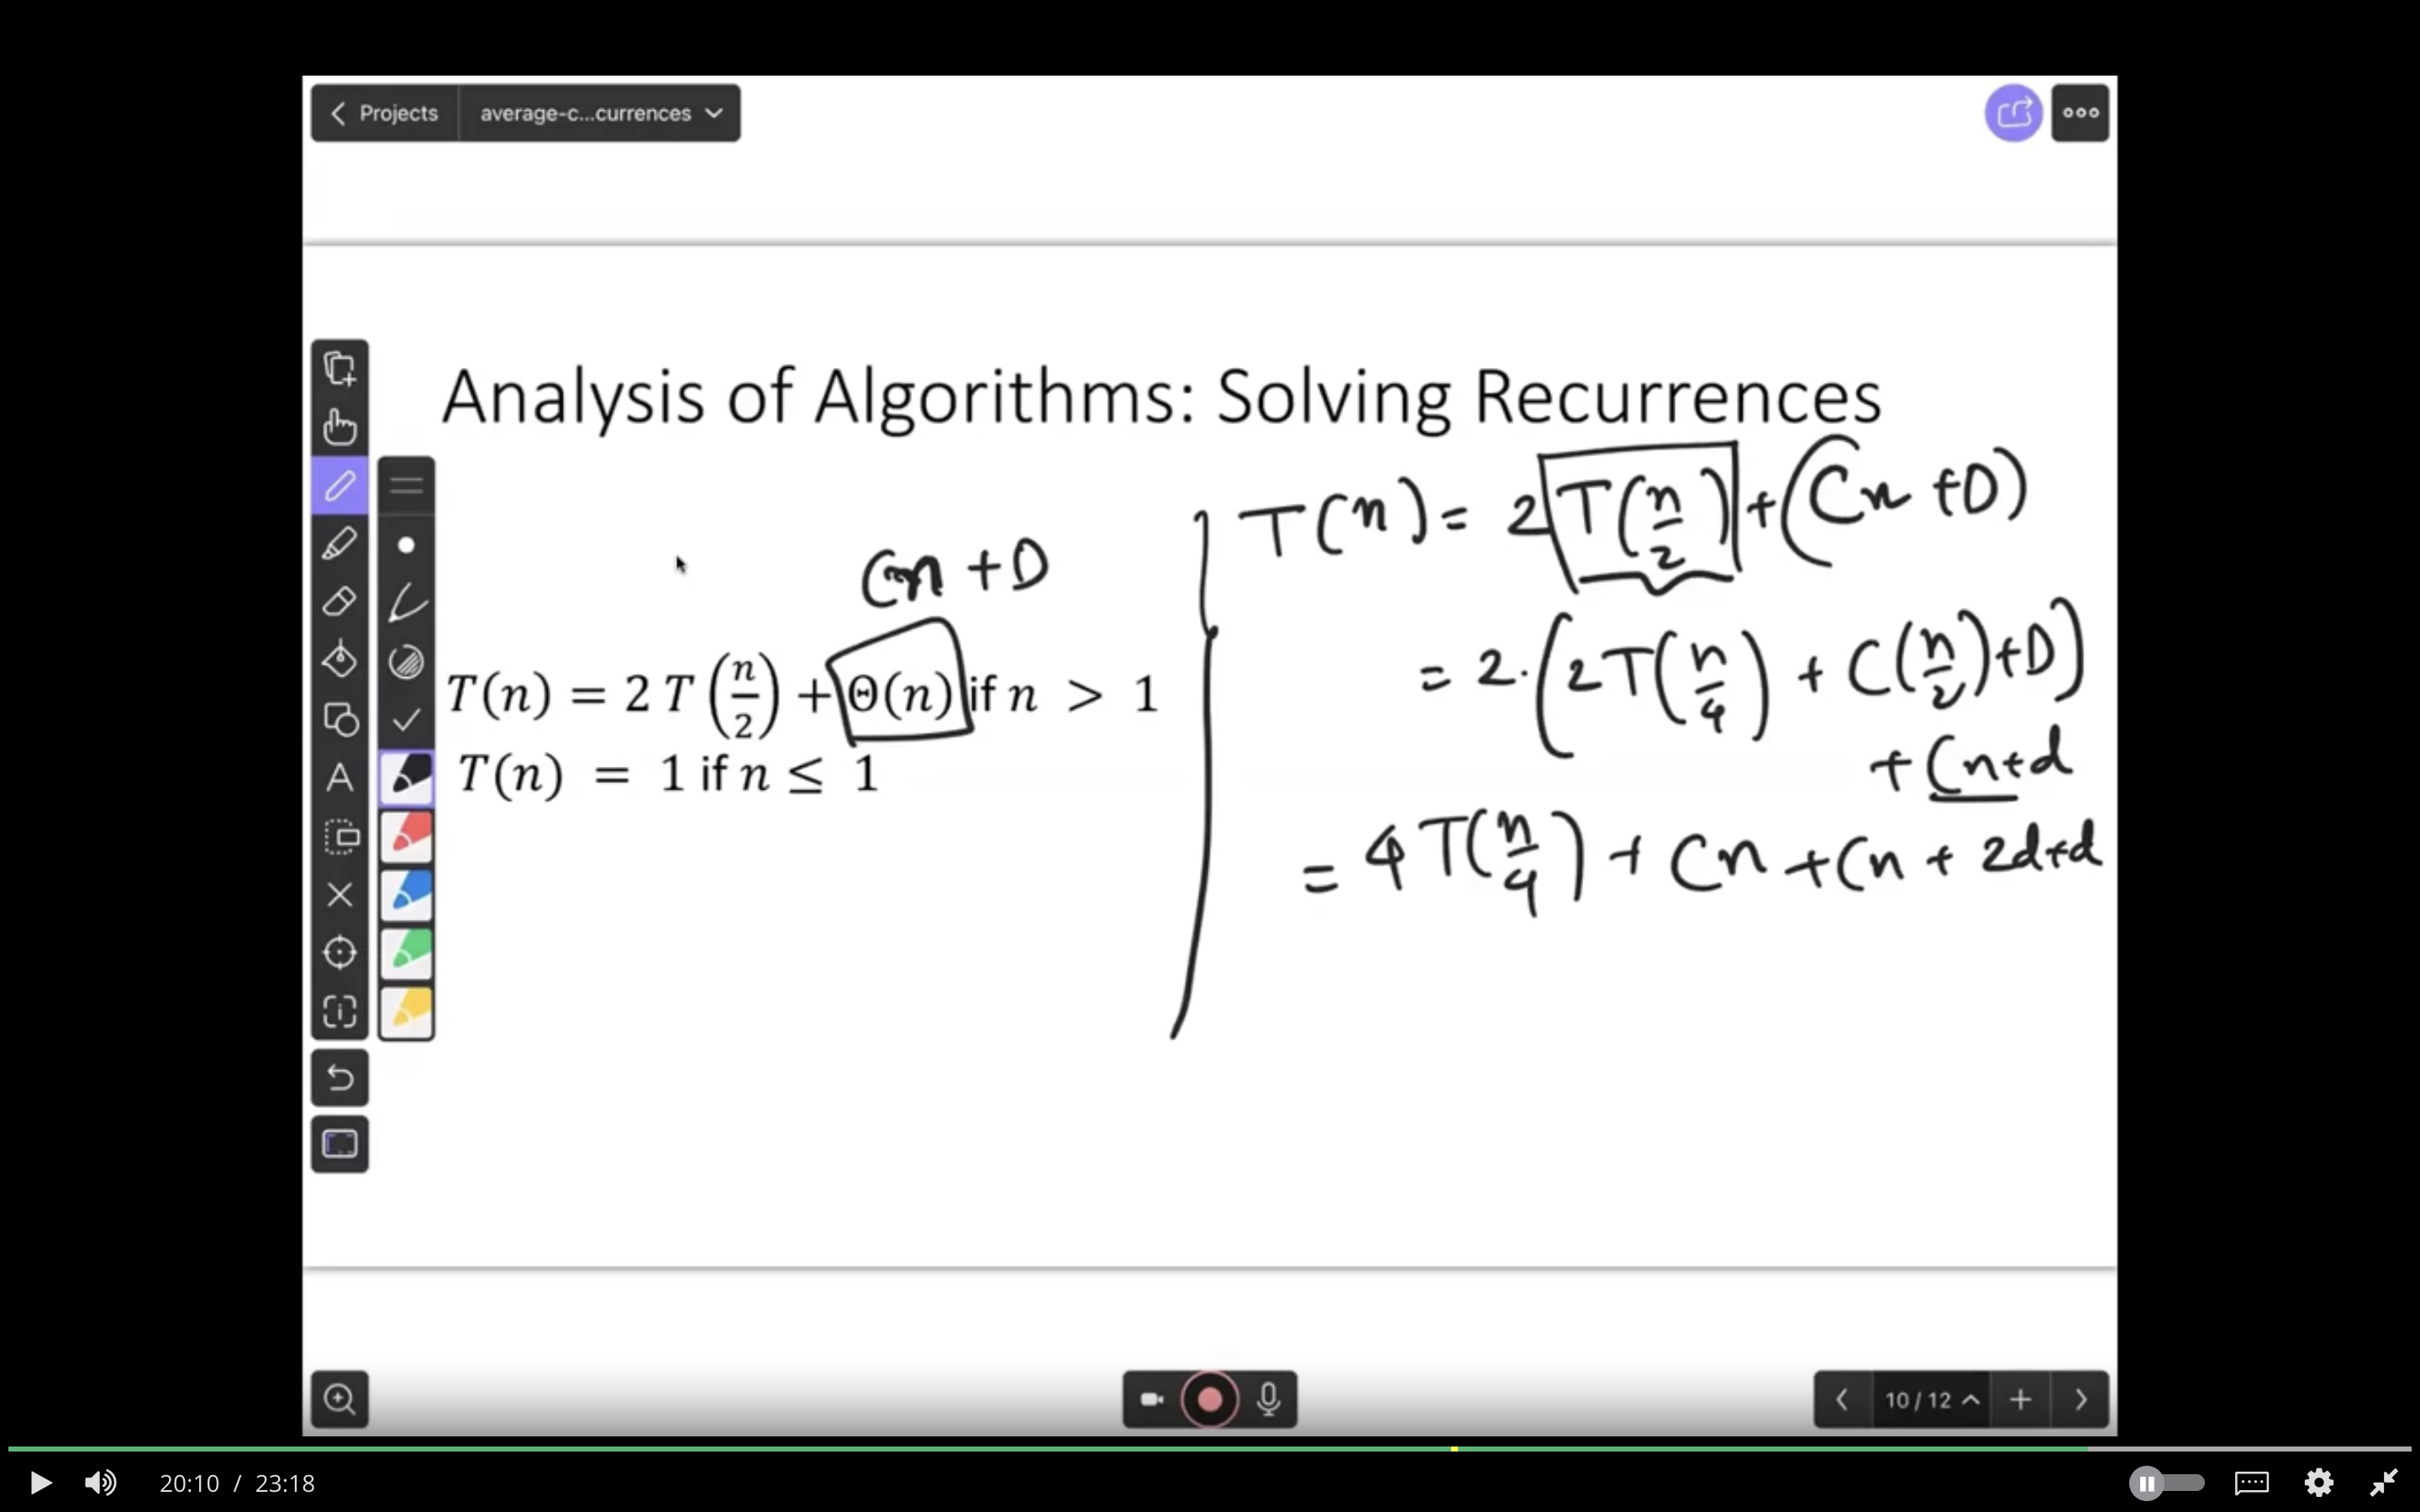 Projects average-c...currences
Analysis of Algorithms: Solving Recurrences
T(n) = 2 T(n/2) + Θ(n) if n > 1
T(n) = 1 if n ≤ 1
Cn + D
T(n) = 2 T(n/2) + (Cn + D)
= 2·(2T(n/4) + C(n/2) + D)
+ Cn + d
= 4T(n/4) + Cn + Cn + 2d + d
10 / 12
20:10 / 23:18